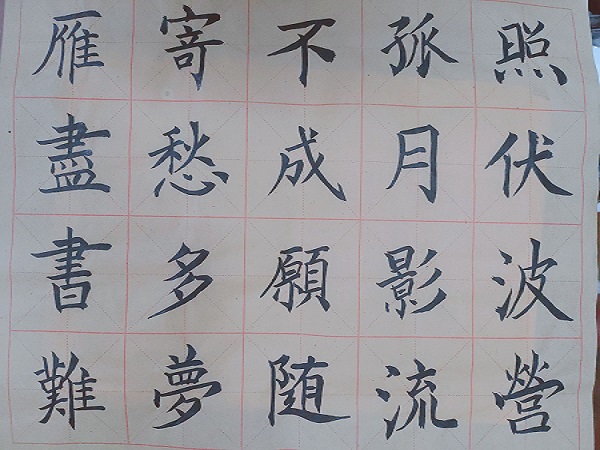 雁盡書難
寄愁多夢
不成願随
孤月影流
照伏波營